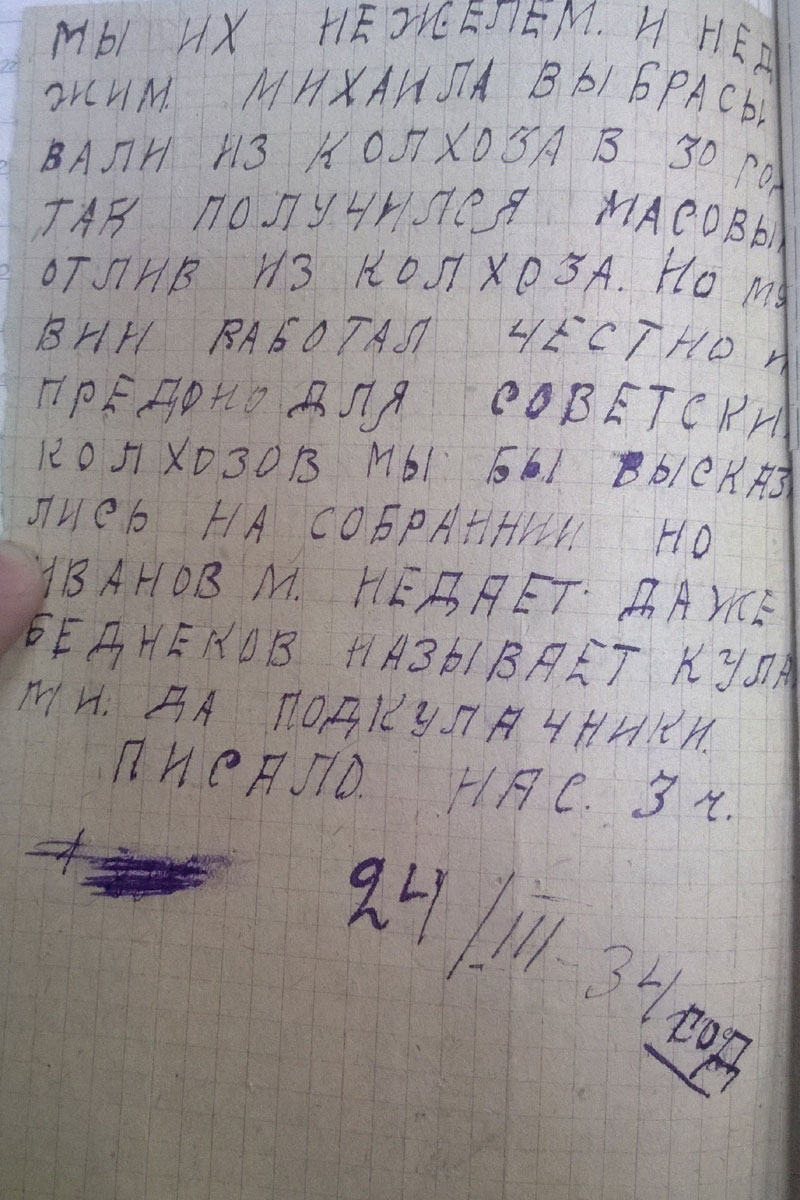 МЫ ИХ НЕЖЕЛЕМ. И НЕД
ЖИМ. МИХАИЛА ВЫБРАСЫ
ВАЛИ ИЗ КОЛХОЗА В 30 ГОД
ТАК ПОЛУЧИЛСЯ МАСОВЫ
ОТЛИВ ИЗ КОЛХОЗА. НО МЯ
ВИН РАБОТАЛ ЧЕСТНО И
ПРЕДОНО ДЛЯ СОВЕТСКИ
КОЛХОЗОВ МЫ БЫ ВЫСКАЗ
ЛИСЬ НА СОБРАННИИ НО
ИВАНОВ М. НЕДАЕТ. ДАЖЕ
БЕДНЕКОВ НАЗЫВАЕТ КУЛА
МИ. ДА ПОДКУЛАЧНИКИ.
ПИСАЛО. НАС. 3 ч.
24/III-34 год